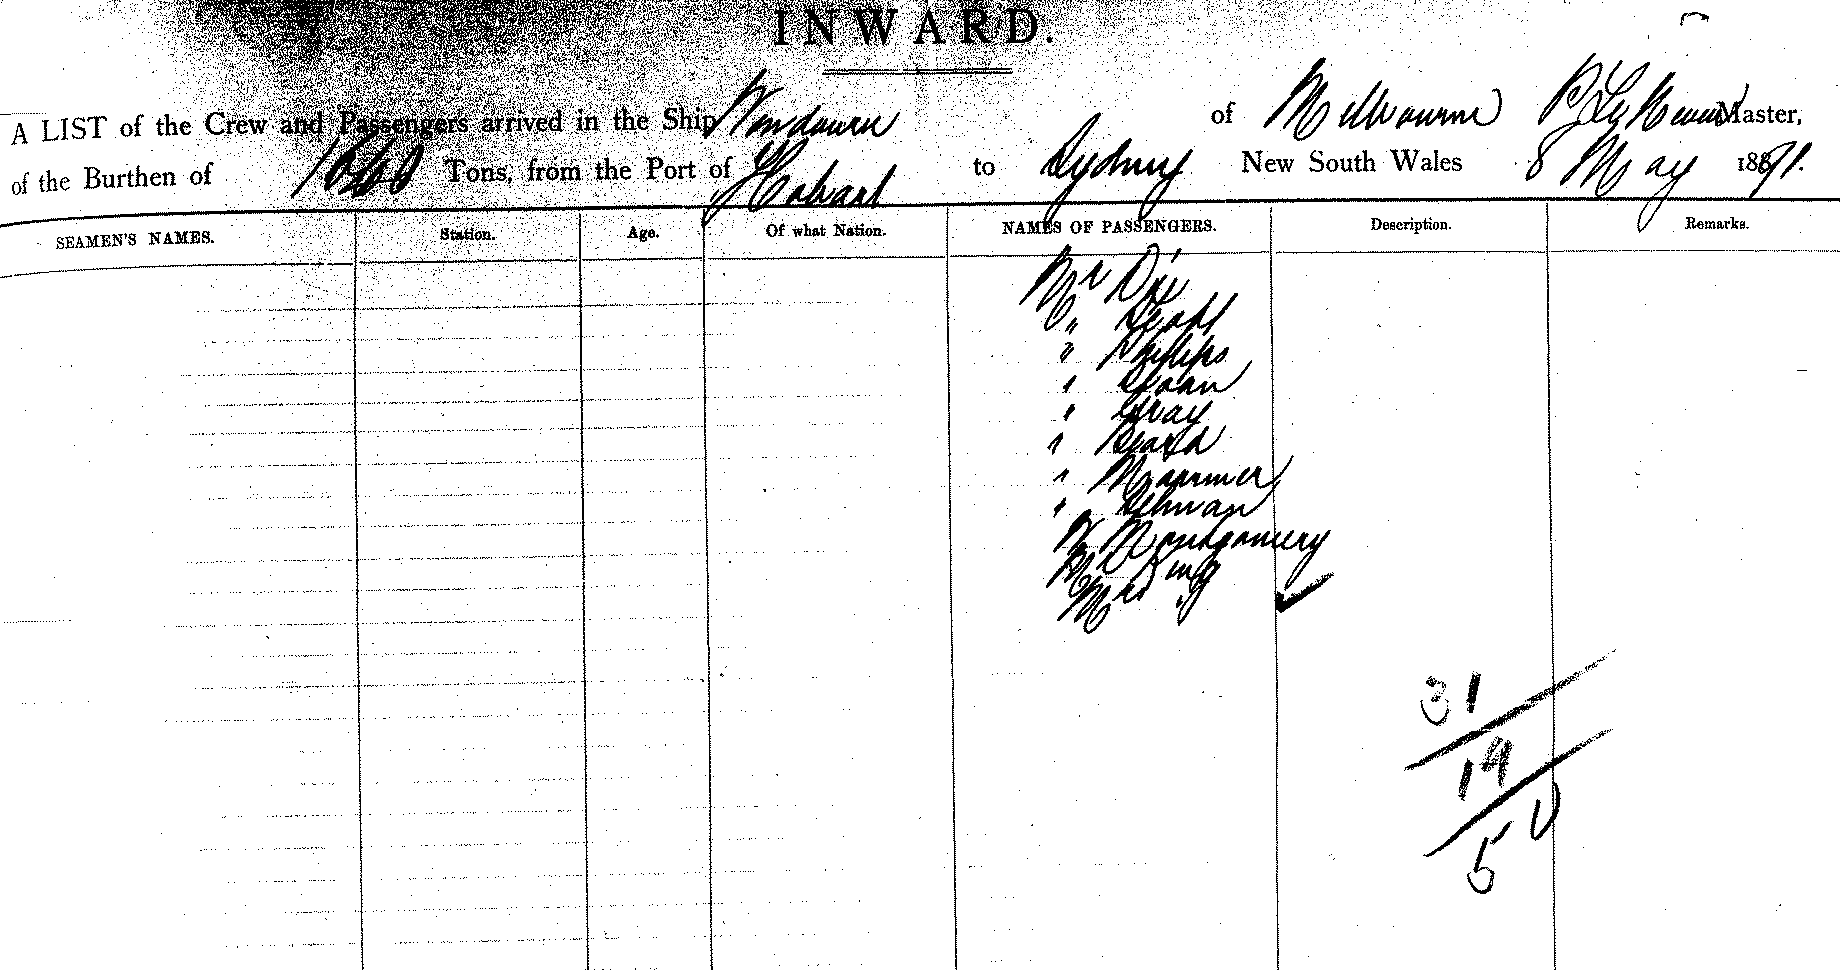 INWARD.
A LIST of the Crew and Passengers arrived in the Ship of Melbourne Master,
of the Burthen of Tons, from the Port of Hobart to Sydney New South Wales 8 May 1891.
SEAMEN'S NAMES. Station. Age. Of what Nation. NAMES OF PASSENGERS. Description. Remarks.
Mr
"
" Phillips
" Sloan
" Gray
"
"
"
Montgomery
Mr King
Mrs "
31
19
50